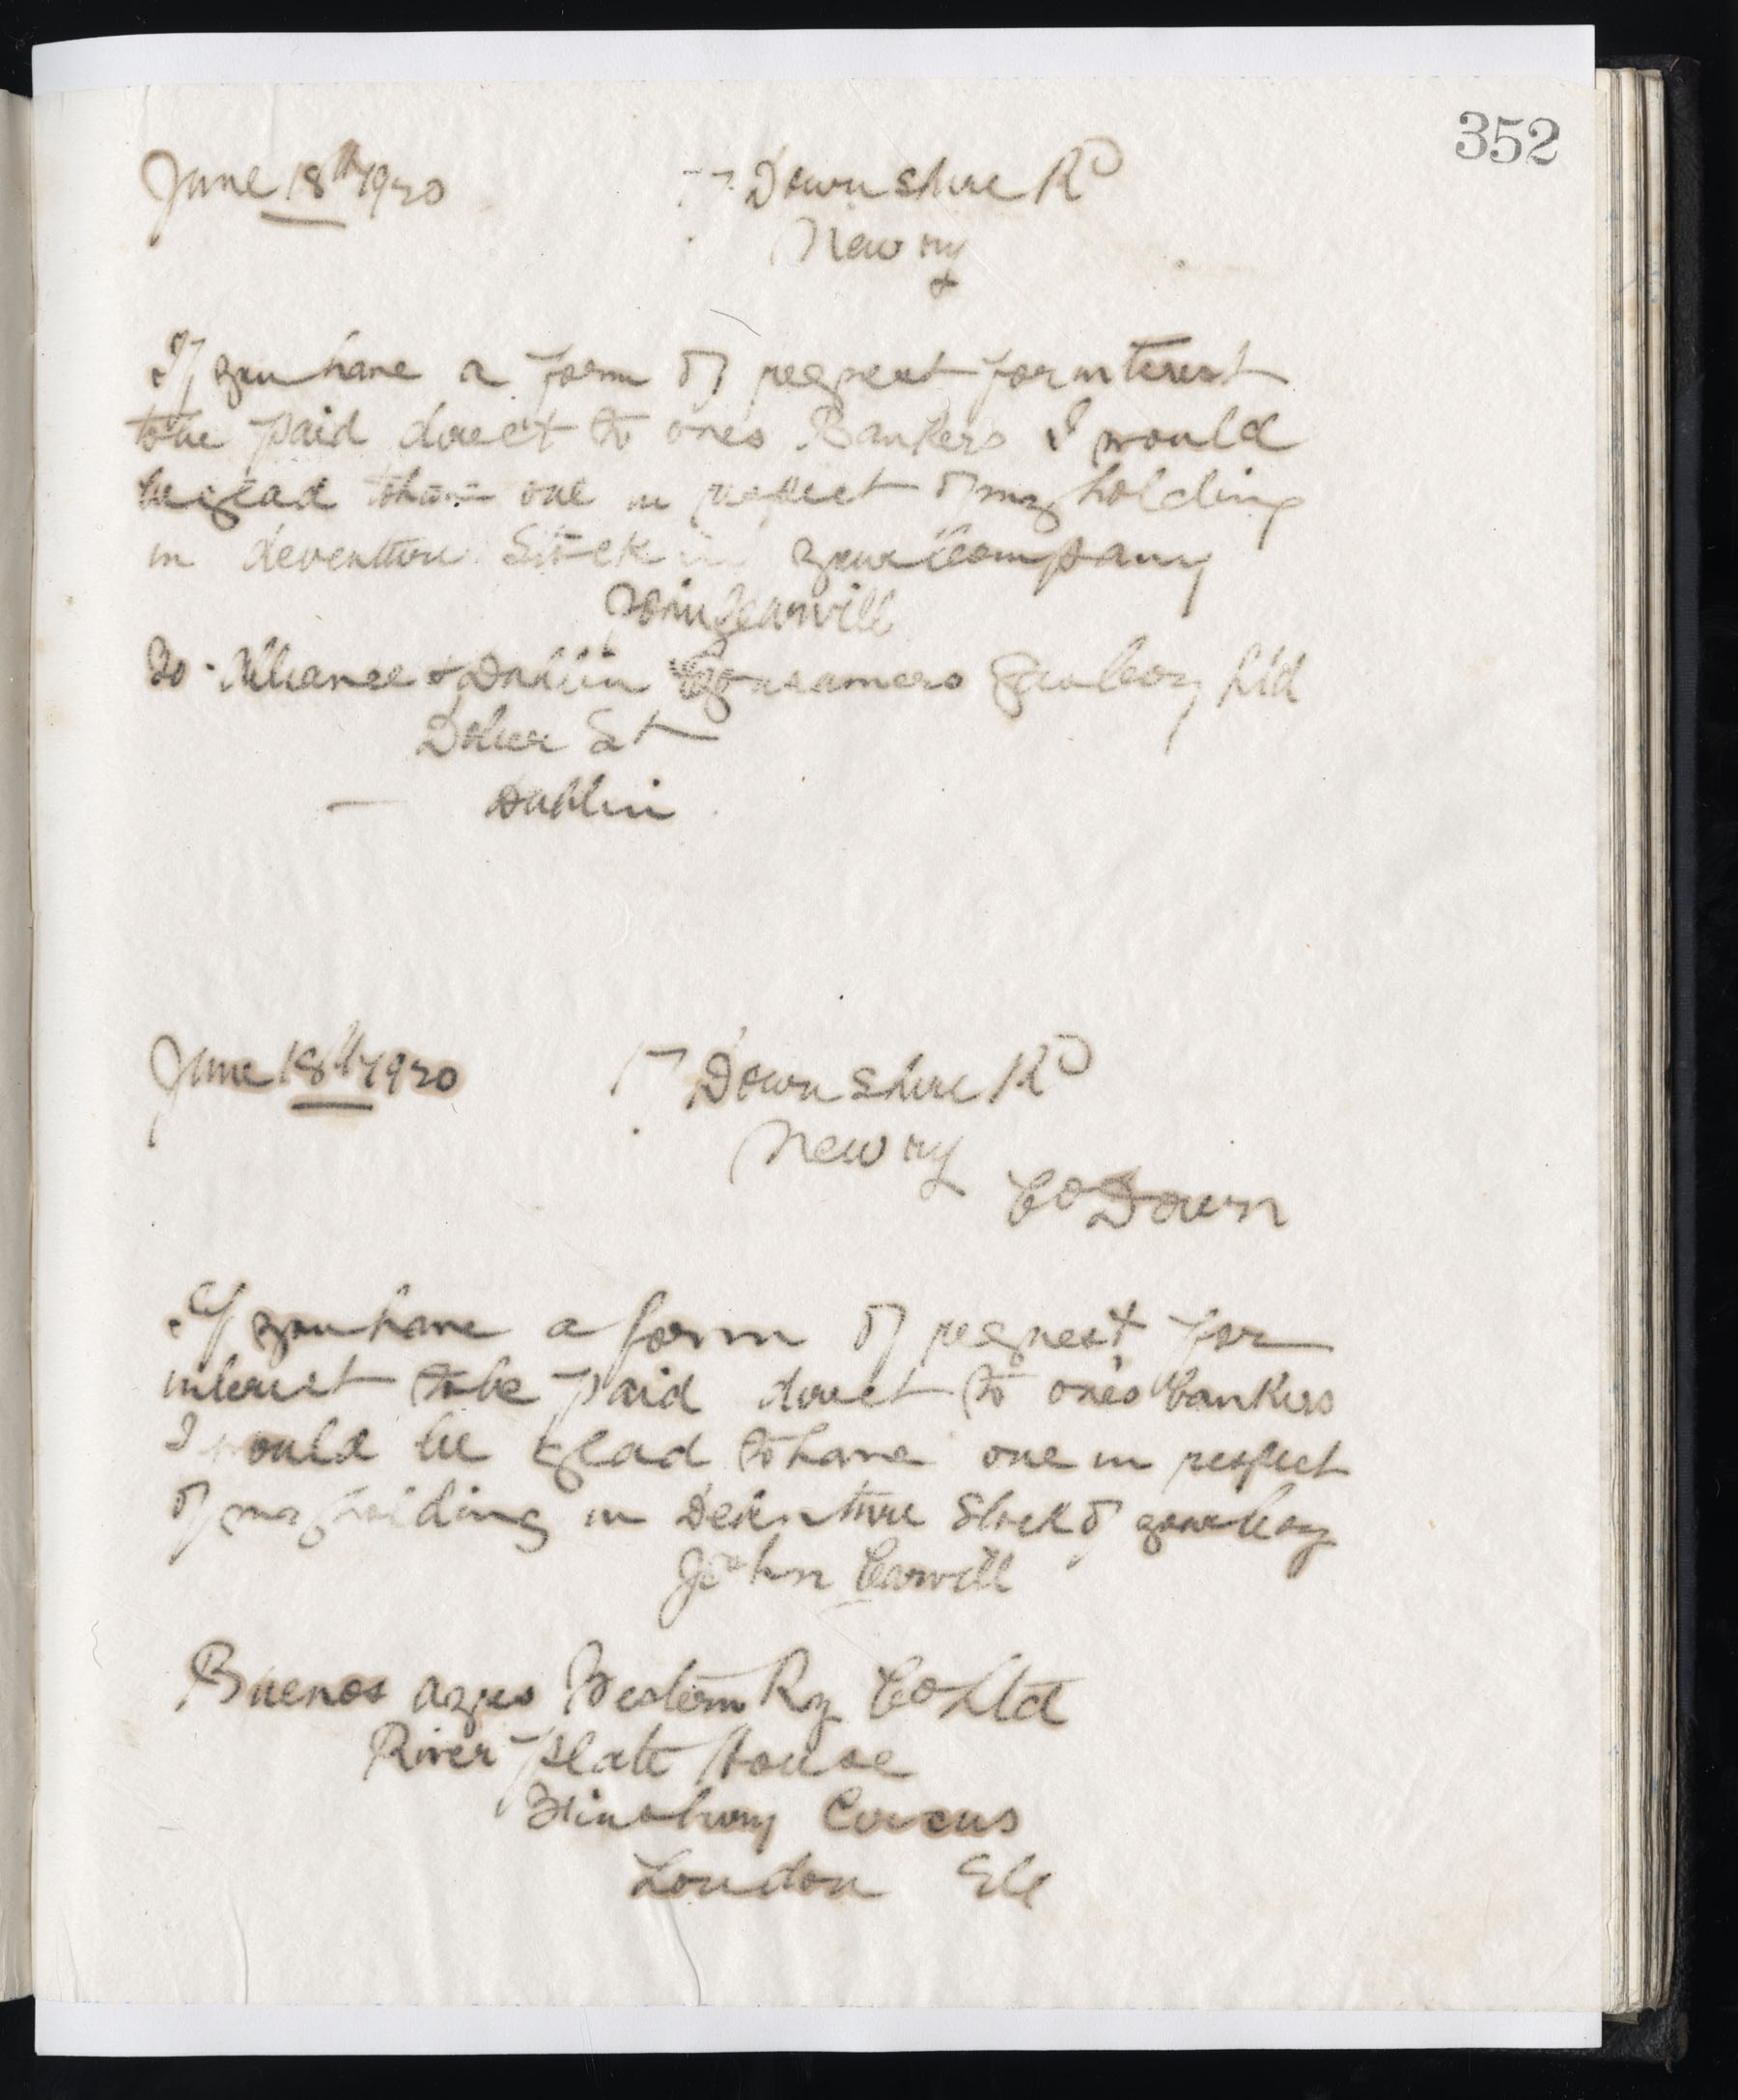 352
June 18th 1920 Downshire Rd
Newry
If you have a form of request for interest
to be paid direct to ones Bankers I would
be glad to have one in respect of my holding
in debenture Stock in your Company
John Carvill
To Alliance & Dublin Consumers Gas Coy Ltd
Dolier St
Dublin
June 18th 1920 Downshire Rd
Newry
Co Down
If you have a form of request for
interest to be paid direct to one's bankers
I would be glad to have one in respect
of my holding in Debenture Stock of your Coy
John Carvill
Buenos Ayres Western Ry Co Ltd
River Plate House
Finsbury Circus
London EC